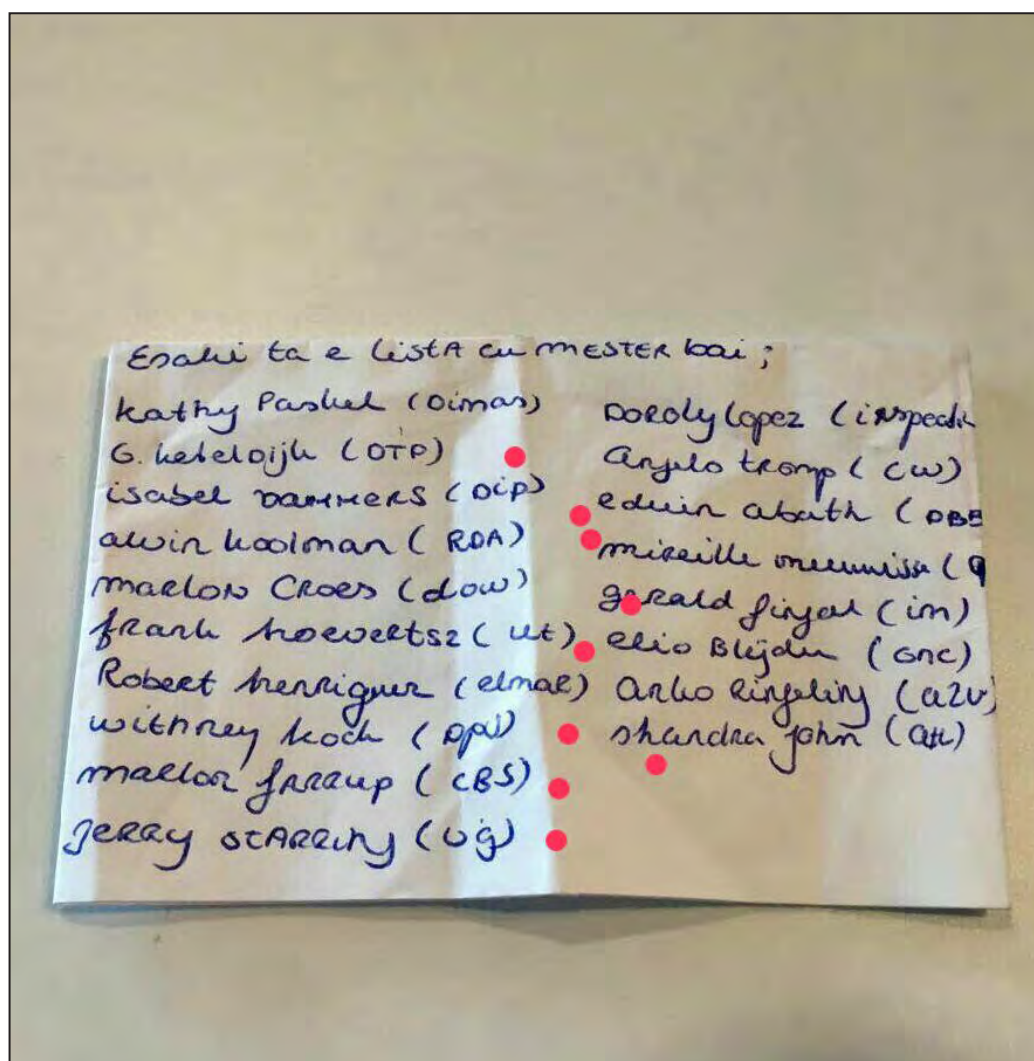 Esaki ta e listA cu MESTER bai;
Kathy Paskel (Dimas)
G. Keteloijh (OTP)
isabel DAMMERS (Dip)
alwin koolman (RDA)
MARLON CROES (dow)
frank hoevertsz (ut)
Robert henriquez (elmar)
withney koch (Dpw)
marlon fARRUP (CBS)
JERRY stARRiny (ug)
DOROLy lopez (inspectie
Angelo tromp (CW)
eduin abath (DBB
mireille (
gerald (im)
elio Blijden (GNC)
Anko Ringeling (azv)
shandra john (att)